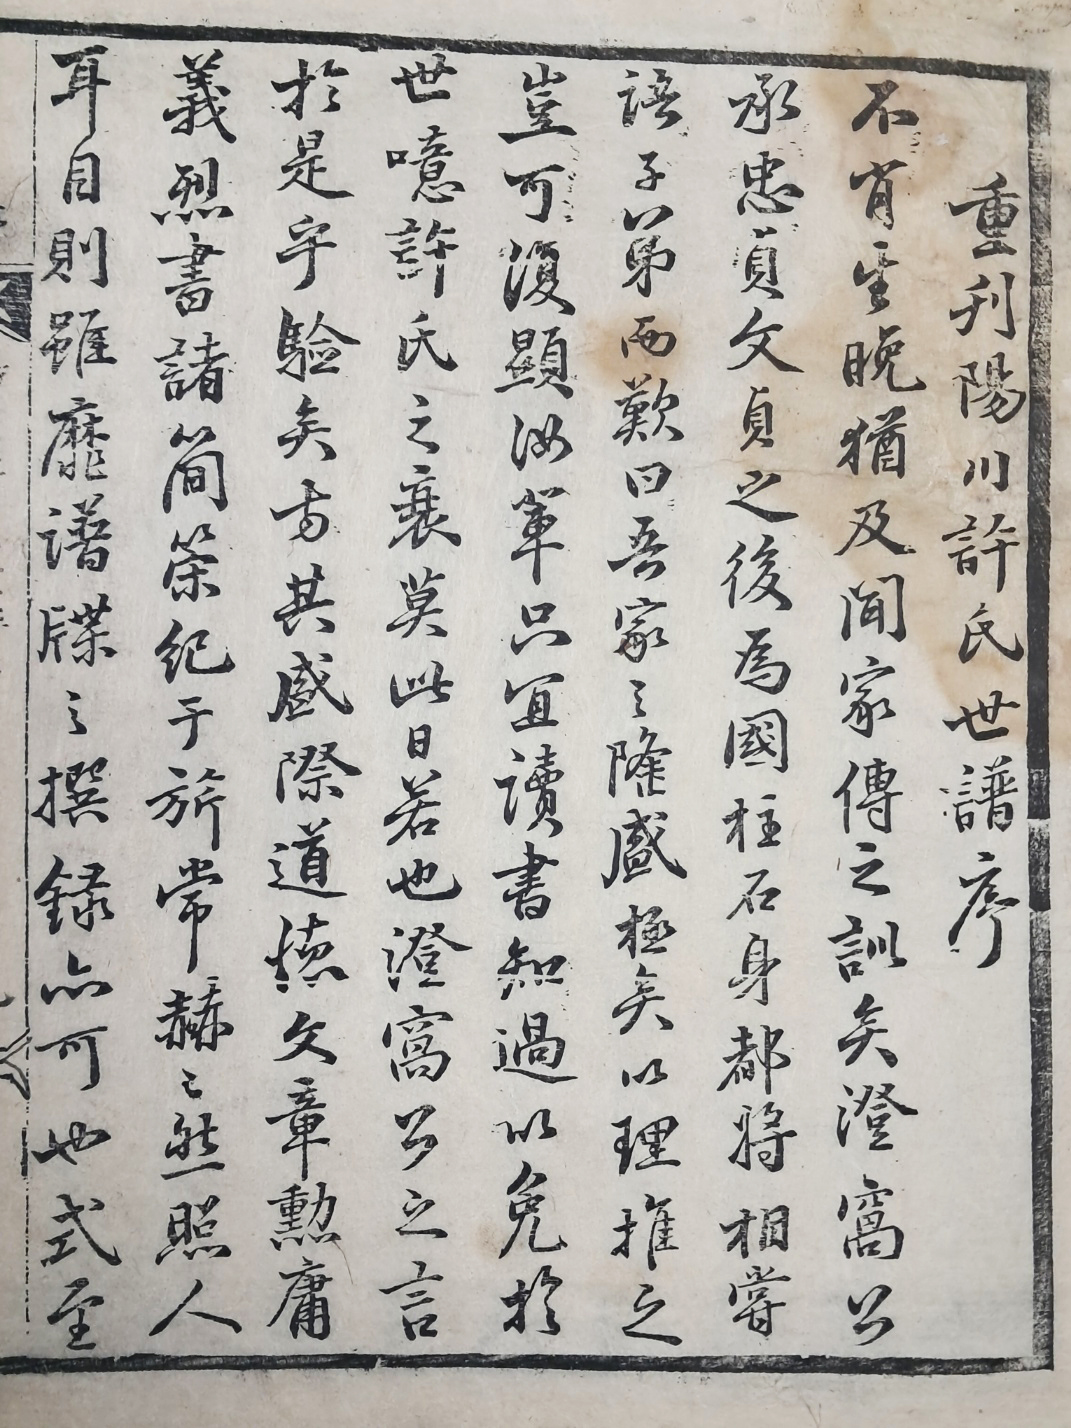 重刊陽川許氏世譜序
不肖生晚猶及聞家傳之訓矣澄窩公
承忠貞文貞之後為國柱石身都將相嘗
語子若弟而歎曰吾家之隆盛極矣以理推之
豈可復顯汝輩只宜讀書知過以免於
世噫許氏之衰莫此日若也澄窩公之言
於是乎驗矣方其盛際道德文章勳庸
義烈書諸簡策紀于旂常赫〻然照人
耳目則雖靡譜牒之撰錄亦可也式至